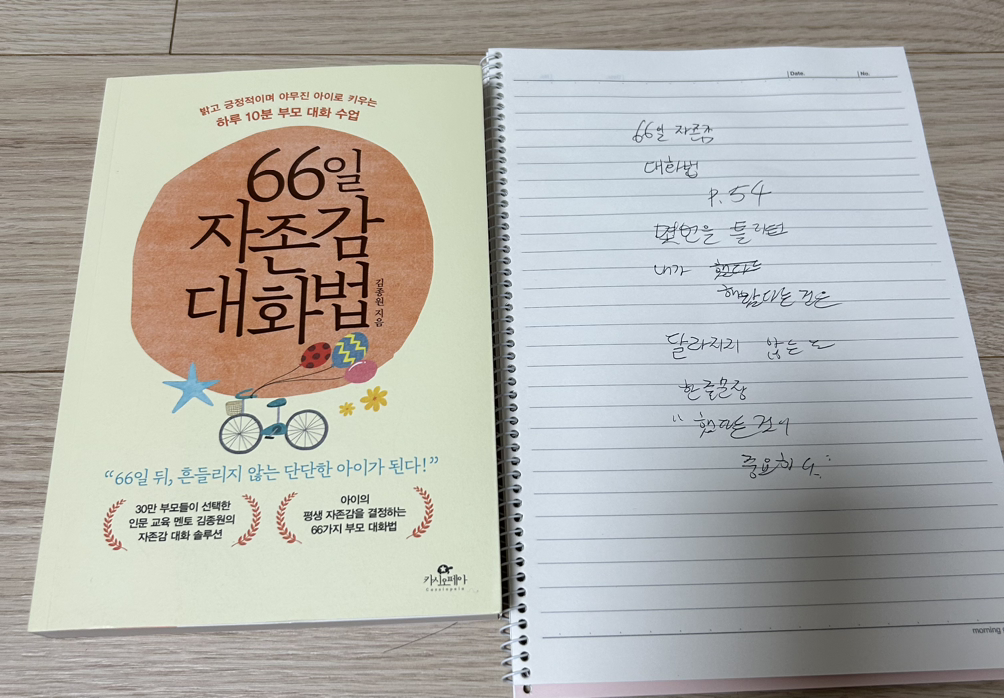 밝고 긍정적이며 야무진 아이로 키우는
하루 10분 부모 대화 수업
66일
자존감
대화법
김종원 지음
“66일 뒤, 흔들리지 않는 단단한 아이가 된다!”
30만 부모들이 선택한
인문 교육 멘토 김종원의
자존감 대화 솔루션
아이의
평생 자존감을 결정하는
66가지 부모 대화법
카시오페아
Cassiopeia
Date.
No.
66일 자존감
대화법
P.54
몇번을 틀려도
내가
해냈다는 것은
달라지지 않는
한 줄 문장
“ 했다는 것이
중요하
morning